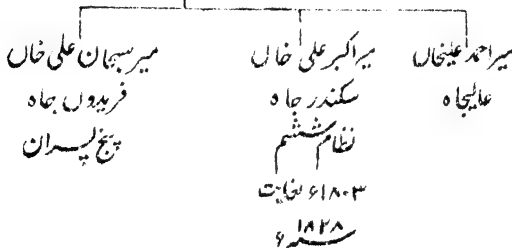 میر احمد علیخاں
عالیجاہ
میر اکبر علی خاں
سکندر جاہ
نظام ششم
۱۸۰۳ء لغایت
۱۸۲۸ء
میر سبحان علی خاں
فریدوں جاہ
پنج پسران